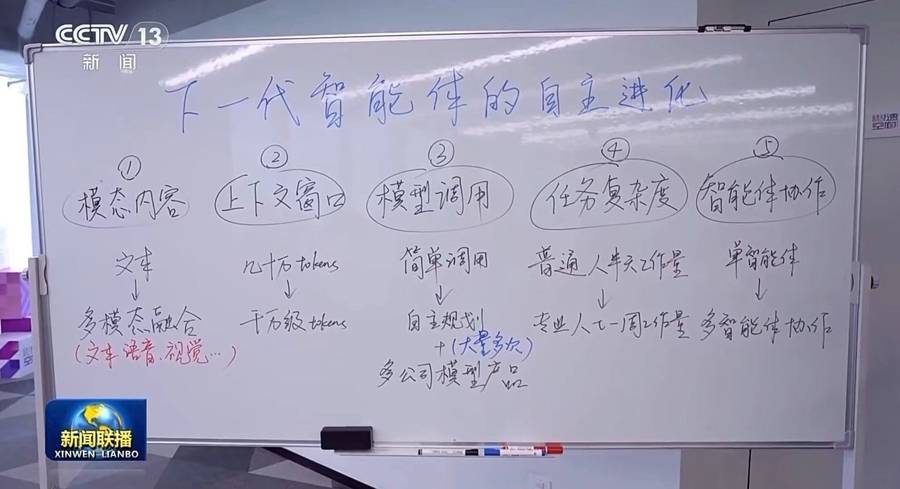 CCTV 13
新闻
下一代智能体的自主进化
① ② ③ ④ ⑤
模态内容 上下文窗口 模型调用 任务复杂度 智能体协作
文本 几十万tokens 简单调用 普通人半天工作量 单智能体
↓ ↓ ↓ ↓ ↓
多模态融合 千万级tokens 自主规划 专业人士一周工作量 多智能体协作
(文本 语音、视觉…) +(大量多次)
多公司模型产品
新闻联播
XINWEN LIANBO